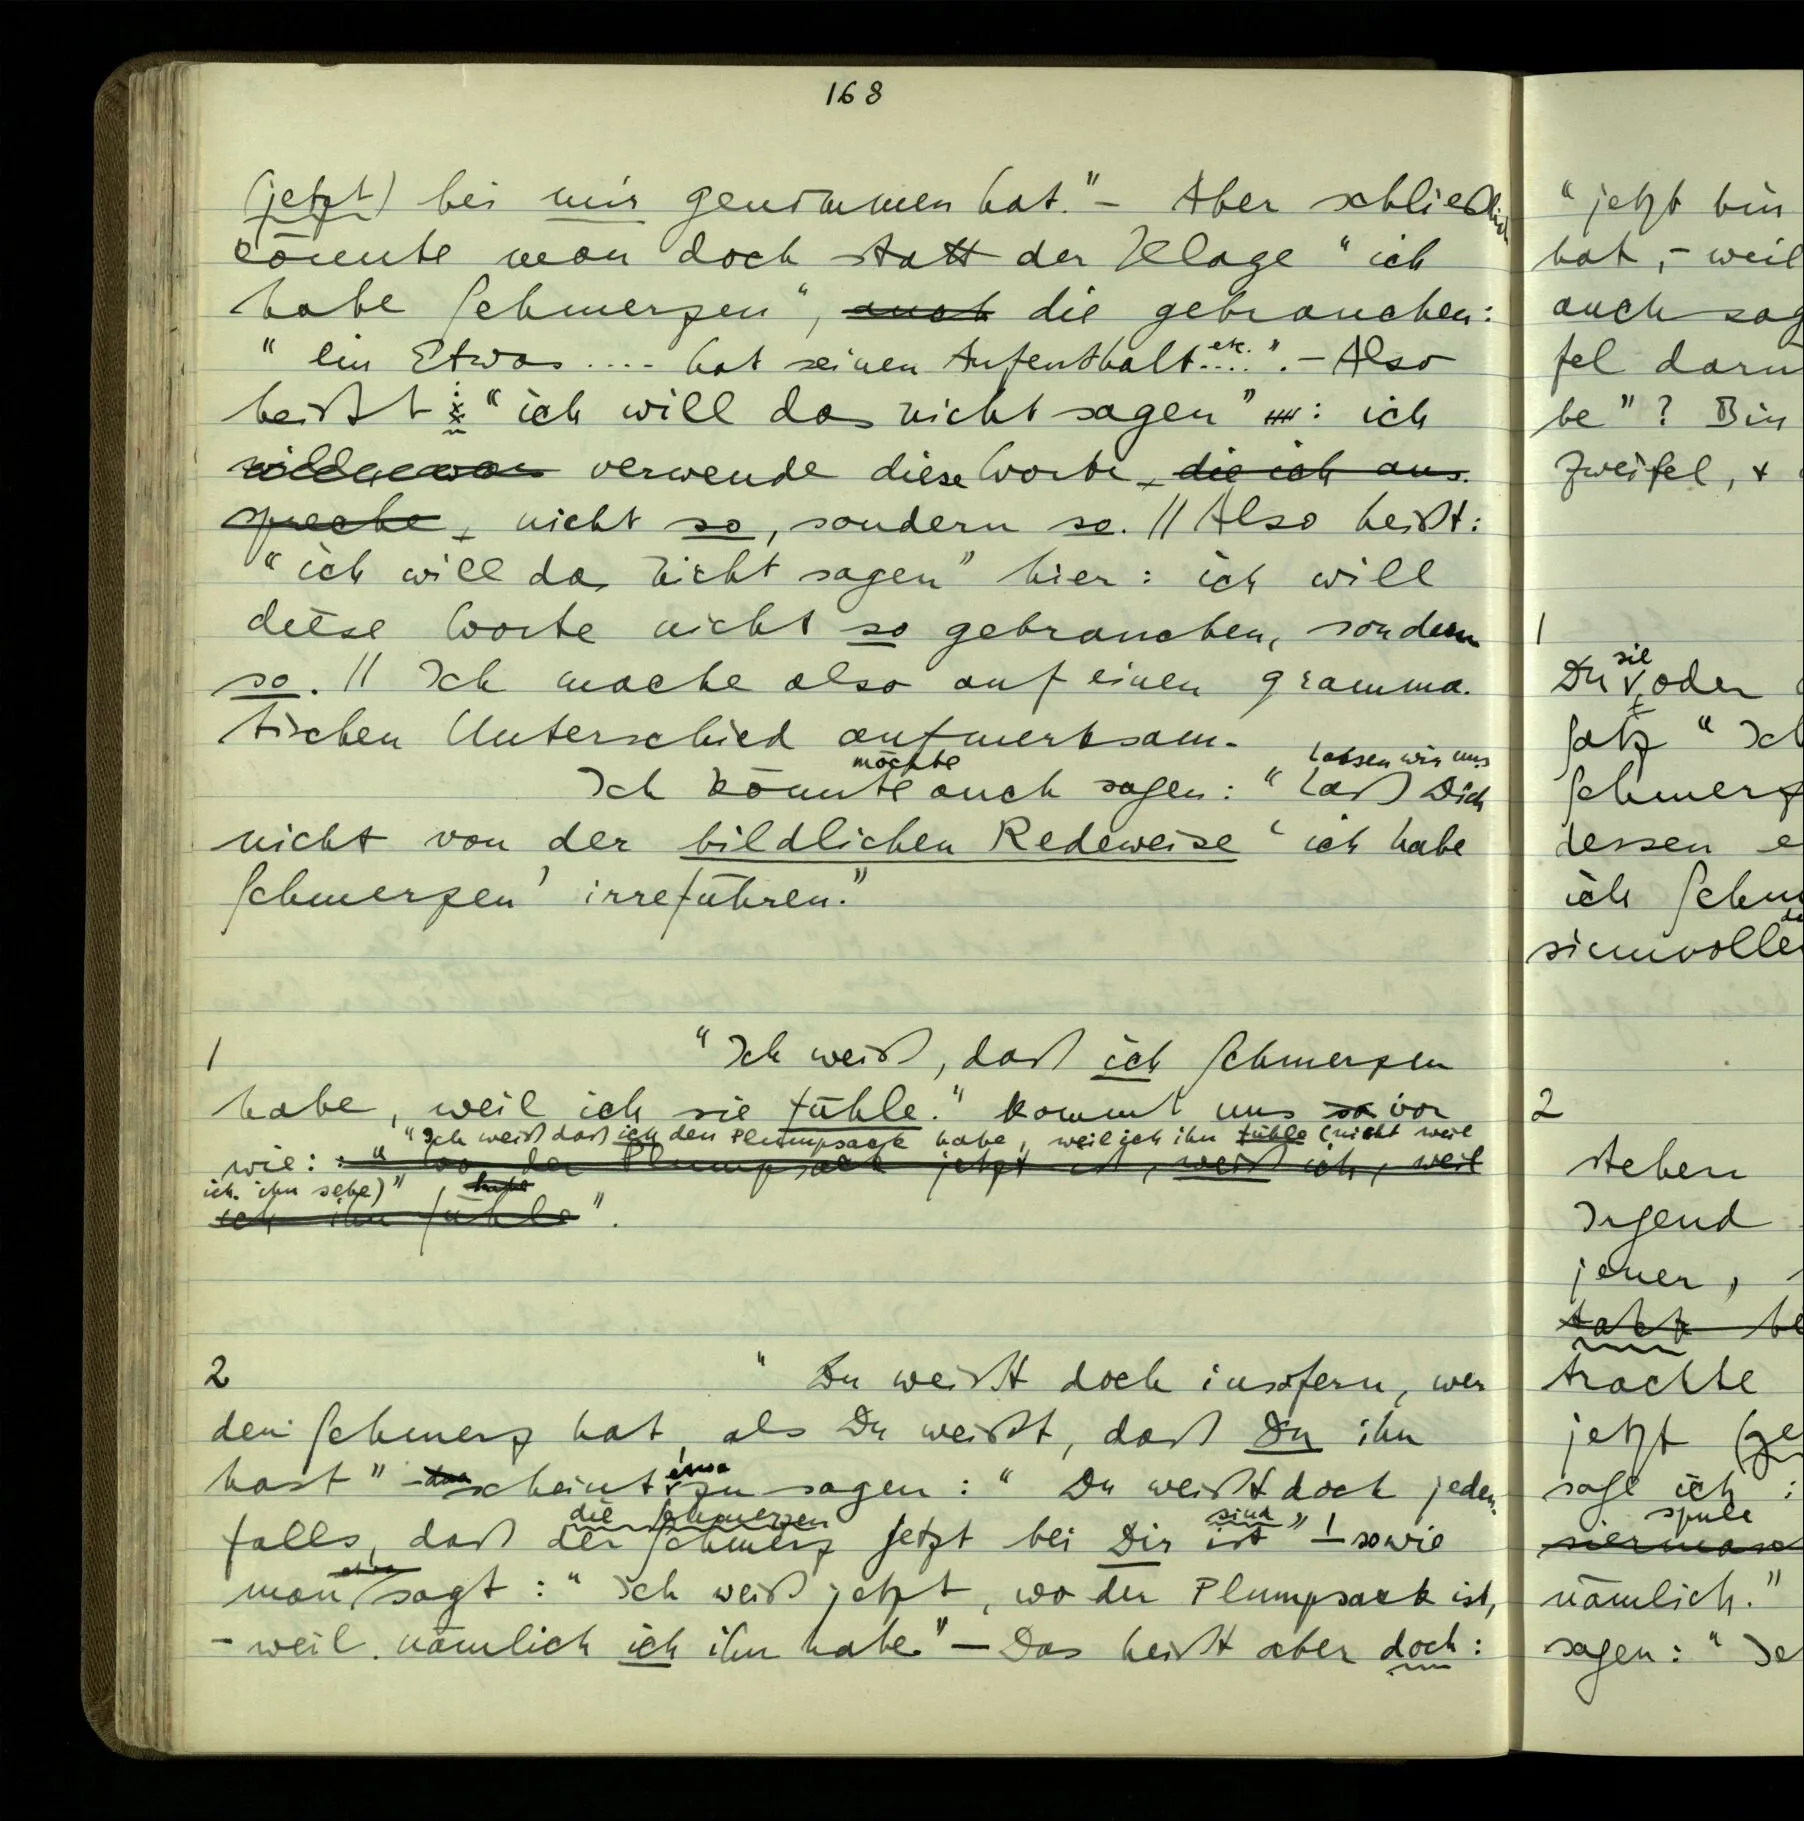 168
(jetzt) bei mir genommen hat." – Aber schließlich
könnte man doch statt der Klage "ich
habe Schmerzen", auch die gebrauchen:
"ein Etwas .... hat seinen Aufenthalt .... etc.". – Also
heißt: "ich will das nicht sagen" : ich
verwende diese Worte, die ich aus-
spreche, nicht so, sondern so. // Also heißt:
"ich will das nicht sagen" hier: ich will
diese Worte nicht so gebrauchen, sondern
so. // Ich mache also auf einen gramma-
tischen Unterschied aufmerksam.
möchte lassen wir uns
Ich könnte auch sagen: "laß Dich
nicht von der bildlichen Redeweise 'ich habe
Schmerzen' irreführen."
1 "Ich weiß, daß ich Schmerzen
habe, weil ich sie fühle." kommt uns so vor
"Ich weiß daß ich den Plumpsack habe, weil ich ihn fühle (nicht weil
wie: "wo der Plumpsack jetzt ist, weiß ich, weil
ich ihn sehe)" habe
ich ihn fühle".
2 "Du weißt doch insofern, wer
den Schmerz hat, als Du weißt, daß Du ihn
etwa
hast" – das scheint zu sagen: "Du weißt doch jeden-
die Schmerzen sind
falls, daß der Schmerz jetzt bei Dir ist" – sowie
etwa
man sagt: "Ich weiß jetzt, wo der Plumpsack ist,
– weil nämlich ich ihn habe." – Das heißt aber doch:
"jetzt bin
hat, – weil
auch sag
fel daru
be"? Bin
Zweifel, +
1
sie
Du oder
Satz "Ich
Schmerz
dessen e
ich Schm
sinnvolle
2
stehen
Irgend
jener,
trachte
jetzt (ge
sage ich :
spüle
nämlich."
sagen: "Je